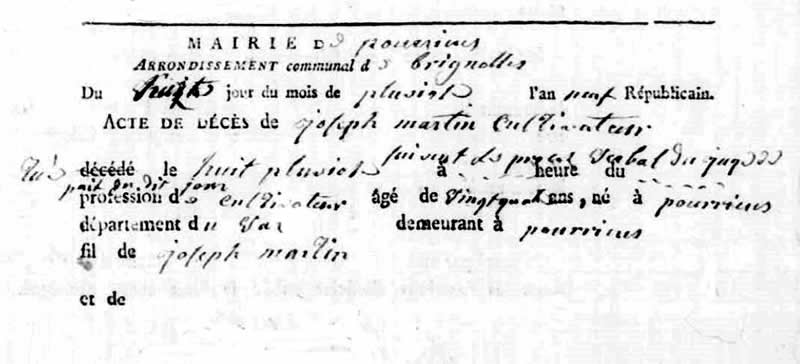 MAIRIE De pourrieres
ARRONDISSEMENT communal de brignolles
Du huit jour du mois de pluviose l'an neuf Républicain.
ACTE DE DÉCÈS de joseph martin cultivateur
suivant le proces verbal du juge de
tué décédé le huit pluviose à heure du
paix du dit jour
profession de cultivateur âgé de vingtquatre ans, né à pourrieres
département du Var demeurant à pourrieres
fil de joseph martin
et de